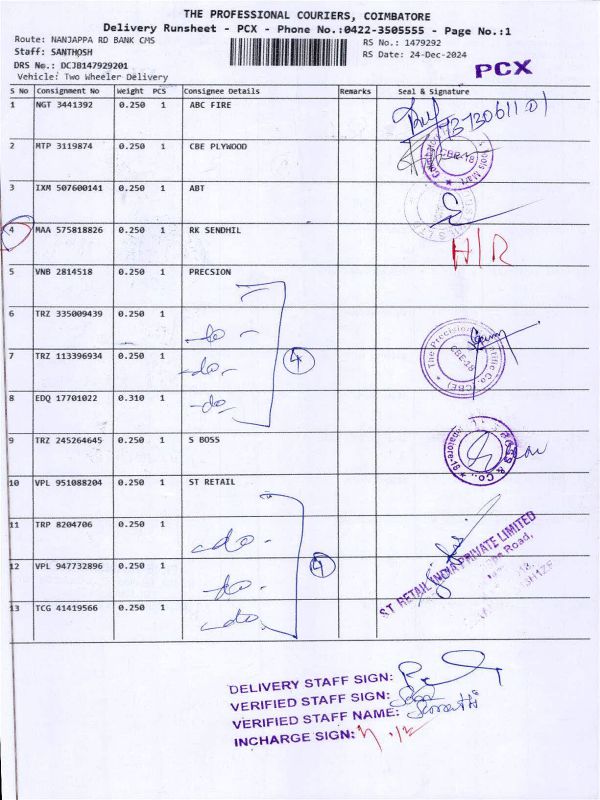 THE PROFESSIONAL COURIERS, COIMBATORE
Delivery Runsheet - PCX - Phone No.:0422-3505555 - Page No.:1
Route: NANJAPPA RD BANK CMS
RS No.: 1479292
Staff: SANTHOSH
RS Date: 24-Dec-2024
DRS No.: DCJB147929201
PCX
Vehicle: Two Wheeler Delivery
S No Consignment No Weight PCS Consignee Details Remarks Seal & Signature
1 NGT 3441392 0.250 1 ABC FIRE
2 MTP 3119874 0.250 1 CBE PLYWOOD
3 IXM 507600141 0.250 1 ABT
4 MAA 575818826 0.250 1 RK SENDHIL
H/R
5 VNB 2814518 0.250 1 PRECSION
6 TRZ 335009439 0.250 1 -do-
7 TRZ 113396934 0.250 1 -do-
4
8 EDQ 17701022 0.310 1 -do-
The Precision
CBE-18
(CBE)
9 TRZ 245264645 0.250 1 S BOSS
& Co.,
10 VPL 951088204 0.250 1 ST RETAIL
11 TRP 8204706 0.250 1 -do-
12 VPL 947732896 0.250 1 -do-
4
13 TCG 41419566 0.250 1 -do-
ST RETAIL INDIA PRIVATE LIMITED
Road,
DELIVERY STAFF SIGN:
VERIFIED STAFF SIGN:
VERIFIED STAFF NAME:
INCHARGE SIGN: